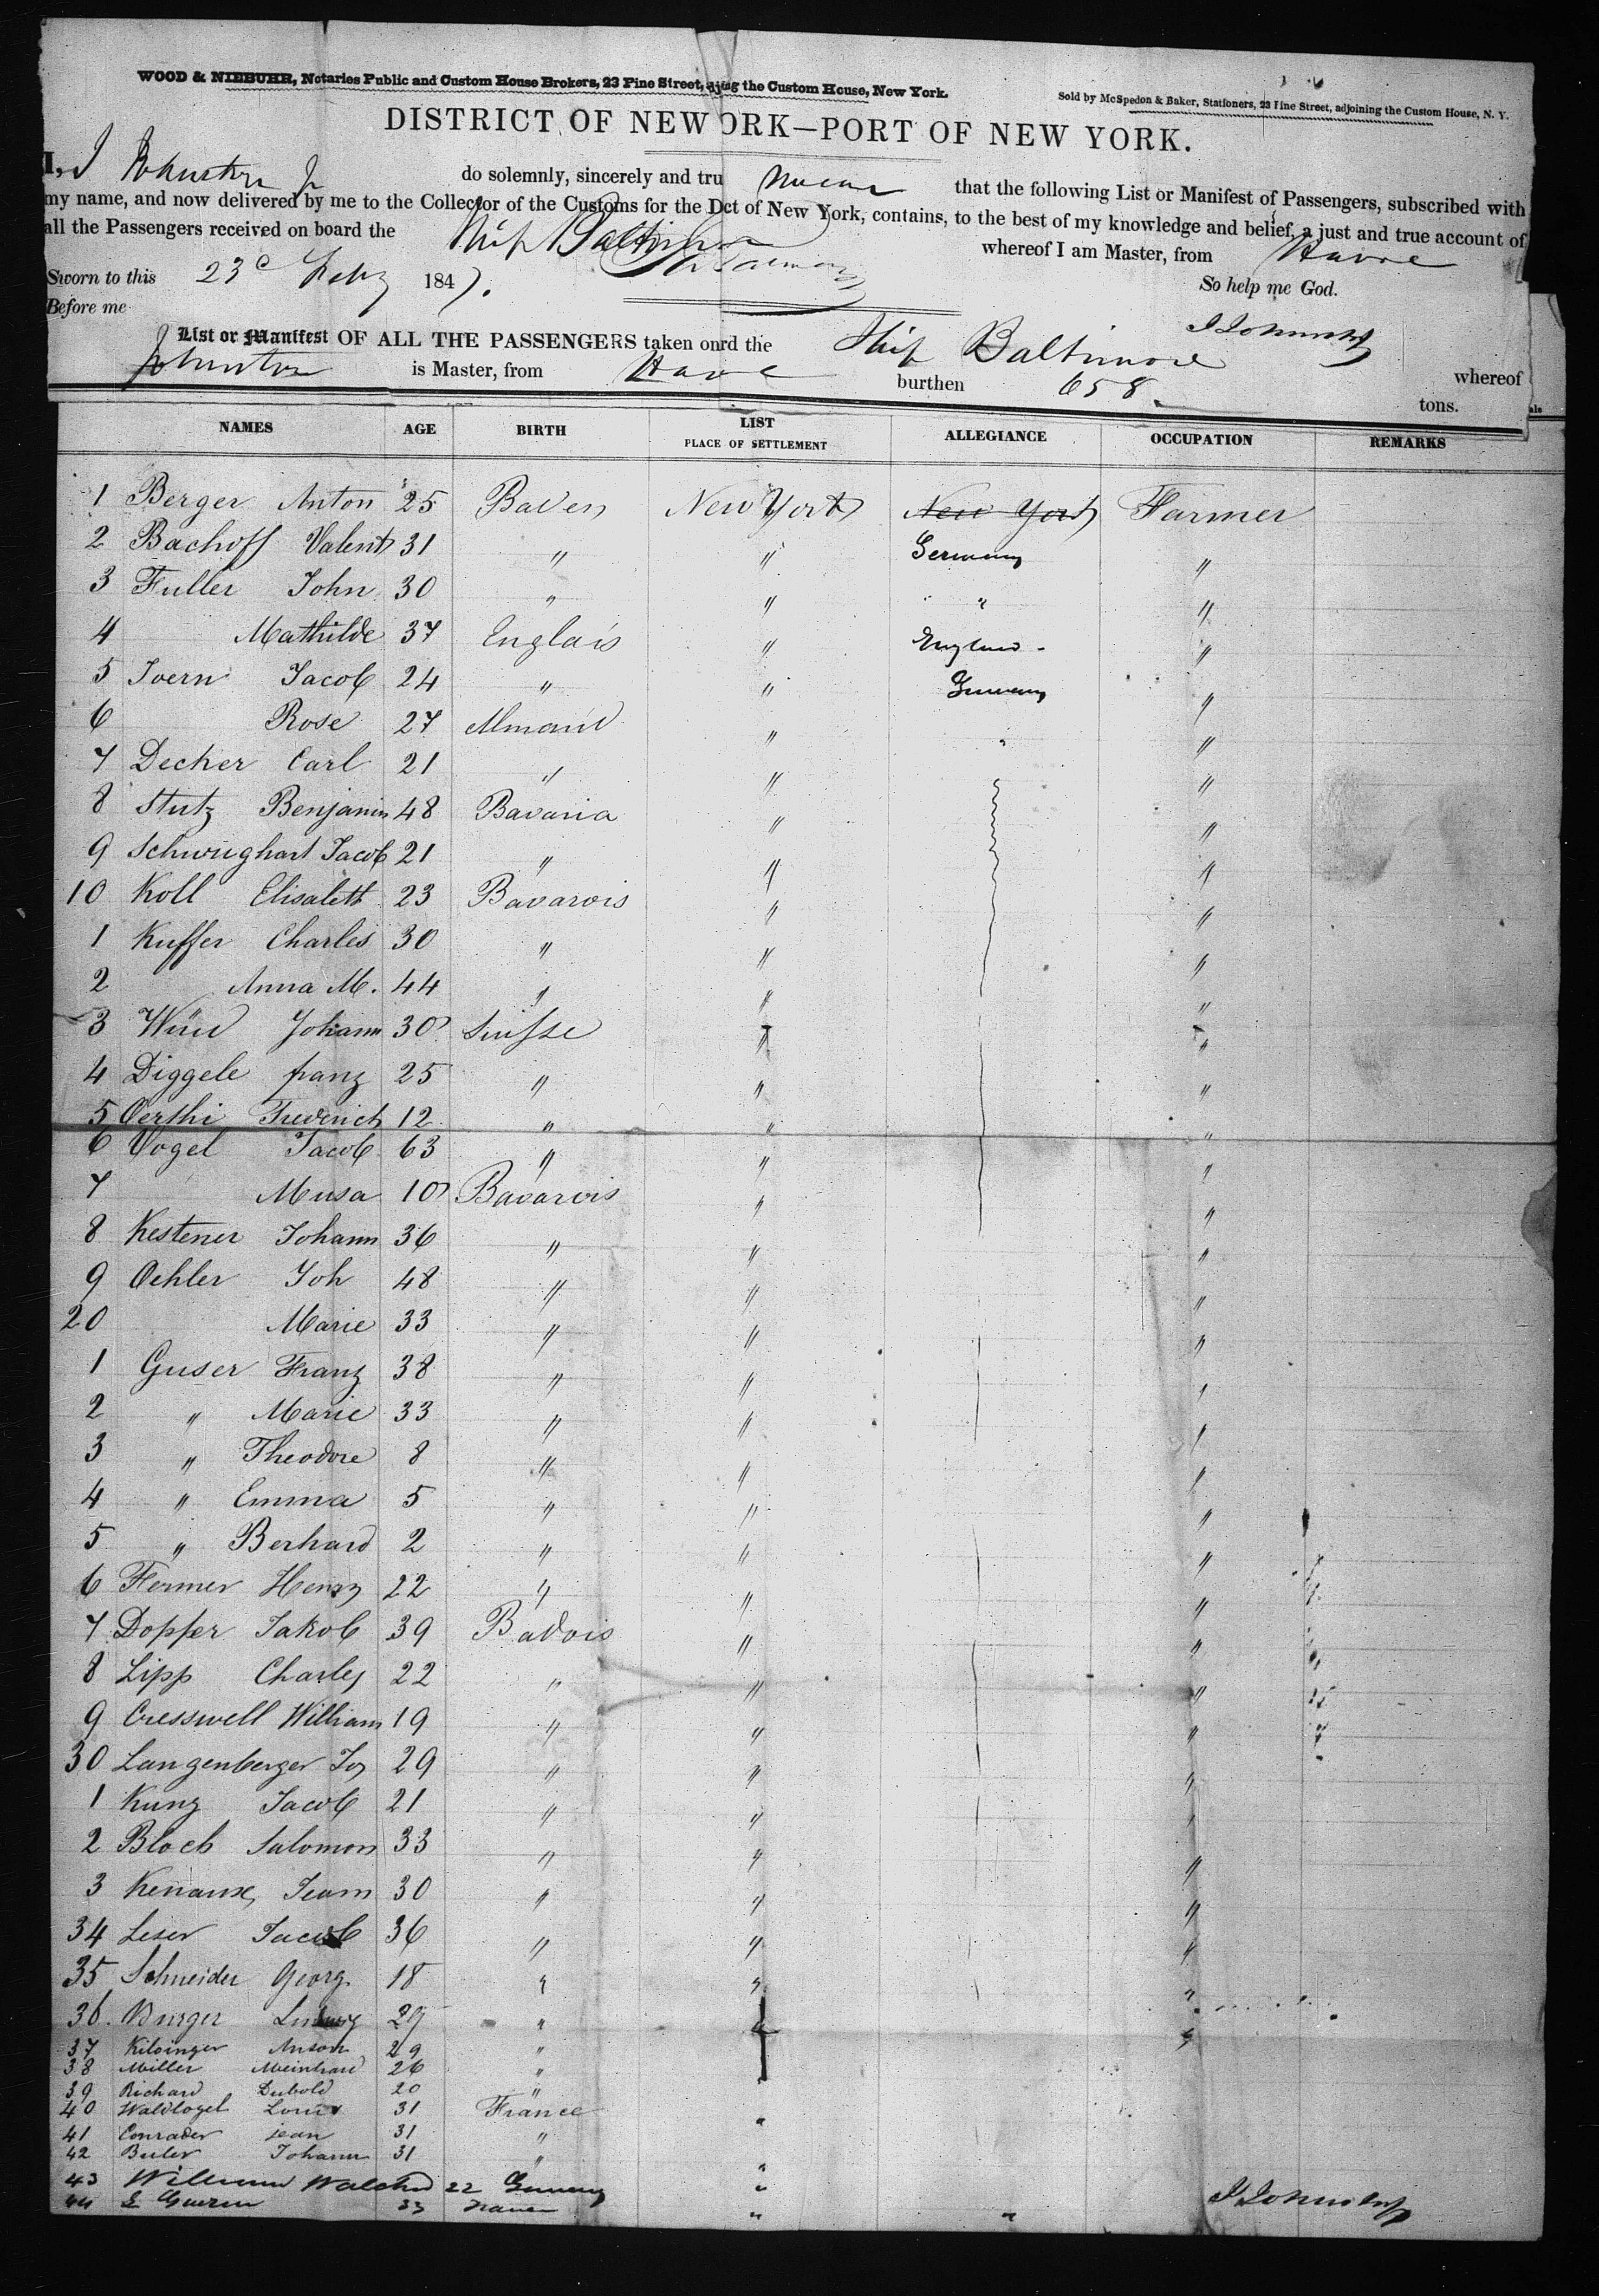 WOOD & NIEBUHR, Notaries Public and Custom House Brokers, 23 Pine Street, the Custom House, New York.
Sold by McSpedon & Baker, Stationers, 23 Pine Street, adjoining the Custom House, N. Y.
DISTRICT OF NEW ORK—PORT OF NEW YORK.
I, J Johnston Jr do solemnly, sincerely and tru swear that the following List or Manifest of Passengers, subscribed with
my name, and now delivered by me to the Collector of the Customs for the Dct of New York, contains, to the best of my knowledge and belief, a just and true account of
all the Passengers received on board the Ship Baltimore whereof I am Master, from Havre
Sworn to this 23d Feby 1847. So help me God.
Before me
J Johnston
List or Manifest OF ALL THE PASSENGERS taken onrd the Ship Baltimore whereof
Johnston is Master, from Havre burthen 658. tons.
NAMES AGE BIRTH LIST PLACE OF SETTLEMENT ALLEGIANCE OCCUPATION REMARKS
1 Berger Anton 25 Baden New York New York Farmer
2 Bachoff Valent 31 " " Germany "
3 Fuller John 30 " " " "
4 Mathilde 37 Englais " England "
5 Joern Jacob 24 " " Germany "
6 Rose 27 Almand " " "
7 Decker Carl 21 " " "
8 Stutz Benjamin 48 Bavaria " "
9 Schwughart Jacob 21 " " "
10 Koll Elisabeth 23 Bavarois " "
1 Kuffer Charles 30 " " "
2 Anna M. 44 " " "
3 Wüd Johann 30 Suisse " "
4 Diggele franz 25 " " "
5 Oerthi Frederick 12 " " "
6 Vogel Jacob 63 " " "
7 Musa 10 Bavarois " "
8 Kestener Johann 36 " " "
9 Oehler Joh 48 " " "
20 Marie 33 " " "
1 Guser Franz 38 " " "
2 " Marie 33 " " "
3 " Theodore 8 " " "
4 " Emma 5 " " "
5 " Berhard 2 " " "
6 Fermer Henry 22 " " "
7 Dopfer Jakob 39 Badois " "
8 Lipp Charles 22 " " "
9 Cresswell William 19 " " "
30 Langenberger Jos 29 " " "
1 Kunz Jacob 21 " " "
2 Bloch Salomon 33 " " "
3 Jeam 30 " " "
34 Leser Jacob 36 " " "
35 Schneider Georg. 18 " " "
36. Burger Ludwig 29 " " "
37 Kilsinger Anson 29 "
38 Miller Meinhard 26 "
39 Richard Dubold 20 "
40 Waldvogel Louis 31 France "
41 Conrader jean 31 "
42 Beiler Johann 31 " "
43 William 22 Germany "
44 E Guerin 23 " "
J Johnston Jr